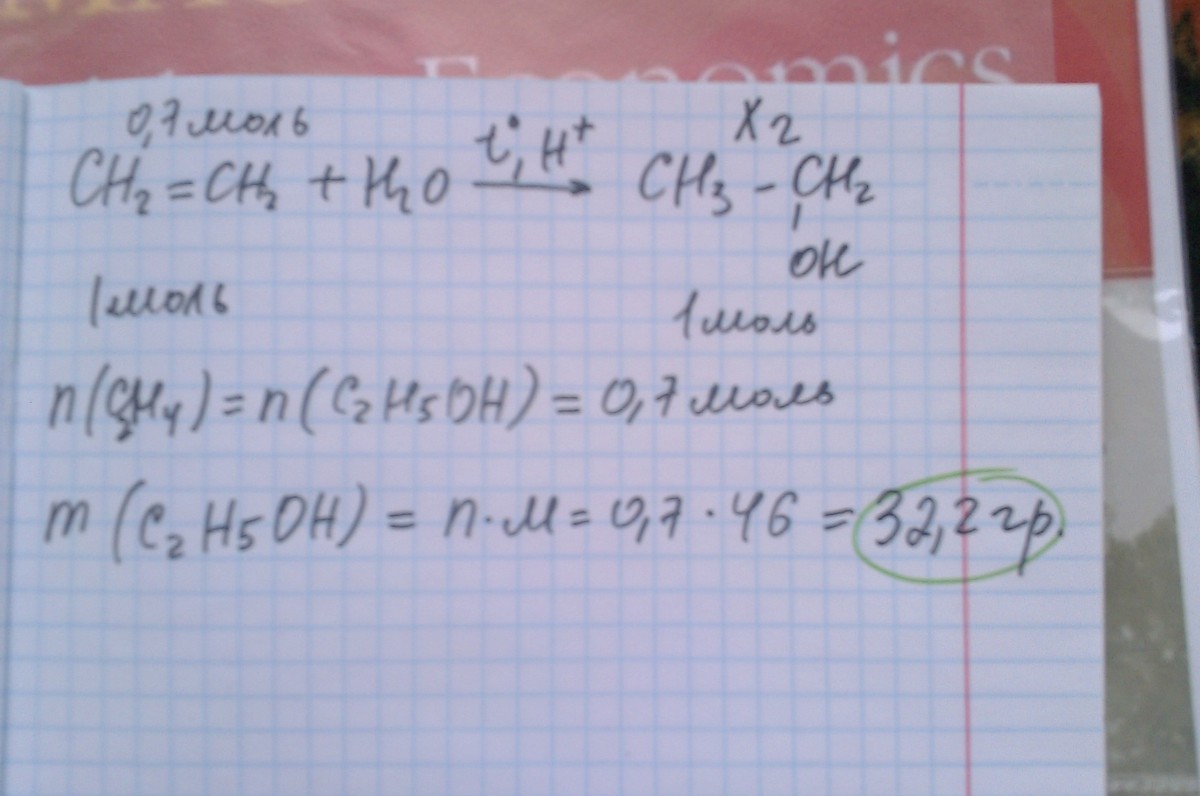 Economics
0,7 моль
X г
CH₂=CH₂ + H₂O t°, H⁺ → CH₃ - CH₂
OH
1 моль
1 моль
n(C₂H₄) = n(C₂H₅OH) = 0,7 моль
m (C₂H₅OH) = n·M = 0,7 · 46 = 32,2 гр.